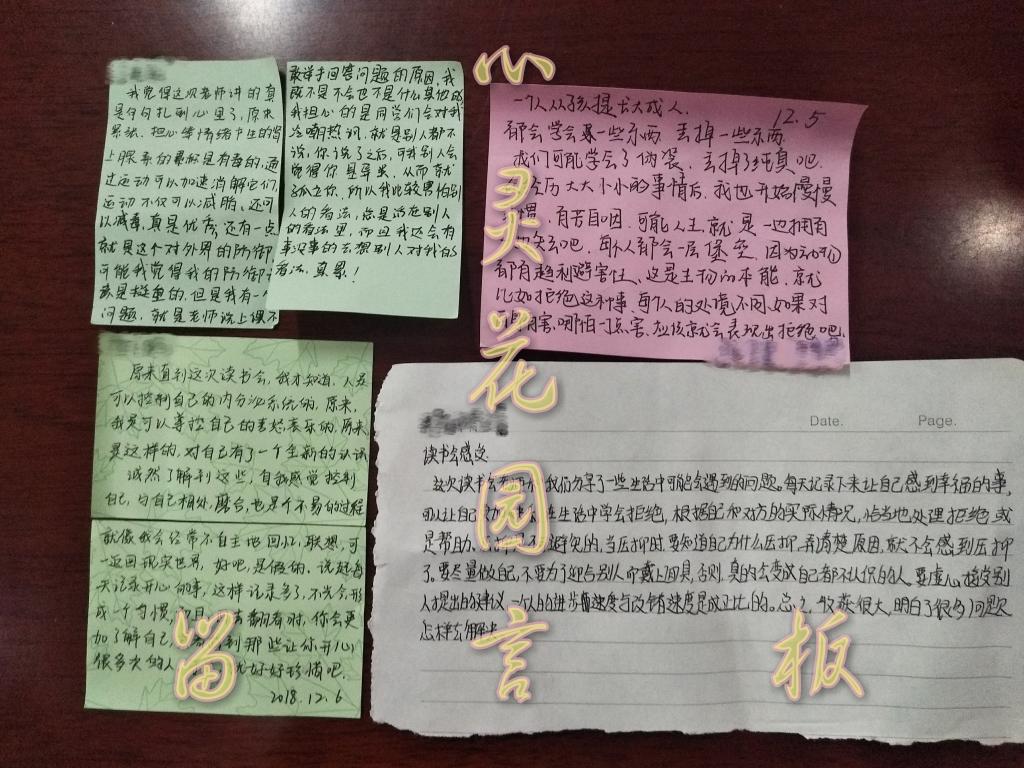 我觉得这次老师讲的真
是句句扎到心里了,原来
紧张、担心等情绪产生的肾
上腺素的累积是有毒的,通
过运动可以加速消解它们,
运动不仅可以减脂,还可
以减毒,真是优秀,还有一点
就是这个对外界的防御
可能我觉得我的防御
是挺重的,但是我有一
问题,就是老师说上课不
敢举手回答问题的原因,我
既不是不会也不是什么其他的
我担心的是同学们会对我
冷嘲热讽,就是别人都不
说,你说了之后,可我别人会
觉得你是异类,从而就
孤立你,所以我比较害怕别
人的看法,总是活在别人
的看法里,而且我还会有
事没事的去想别人对我的
看法,真累!
一个人从孩提长大成人,
12.5
都会学会某一些东西,丢掉一些东西
我们可能学会了伪装,丢掉了纯真吧.
经历大大小小的事情后,我也开始慢慢
惯,有苦自咽,可能人生就是一边拥有
失去吧,每人都会一层堡垒,因为
都有趋利避害性,这是生物的本能,就
比如拒绝这种事,每人的处境不同,如果对
有害,哪怕一点害,应该就会表现出拒绝吧.
原来直到这次读书会,我才知道,人是
可以控制自己的内分泌系统的,原来,
我是可以掌控自己的喜怒哀乐的,原来
是这样的,对自己有了一个全新的认识
诚然了解到这些,自我感觉控制
自己,与自己相处,磨合,也是个不易的过程
就像我会经常不自主地回忆,联想,可
一返回现实世界,好吧,是假的,说起每
天记录开心的事,这样记录多了,不光会形
成一个习惯,翻看时,你会更
加了解自己,到那些让你开心
很多次的人,好好珍惜吧.
2018.12.6
Date. Page.
读书会感受
这次读书会老师和我们分享了一些生活中可能会遇到的问题。每天记录下来让自己感到幸福的事,
可以让自己在生活中学会拒绝,根据自己和对方的实际情况,恰当地处理拒绝或
是帮助。避免的,当压抑时,要知道自己为什么压抑,弄清楚原因,就不会感到压抑
了。要尽量做自己,不要为了迎合别人而戴上面具,否则,真的会变成自己都不认识的人。要虚心接受别
人提出的建议,一个人的进步的速度与改错的速度是成正比的。总之,收获很大,明白了很多问题
怎样去解决
心灵花园
留言板